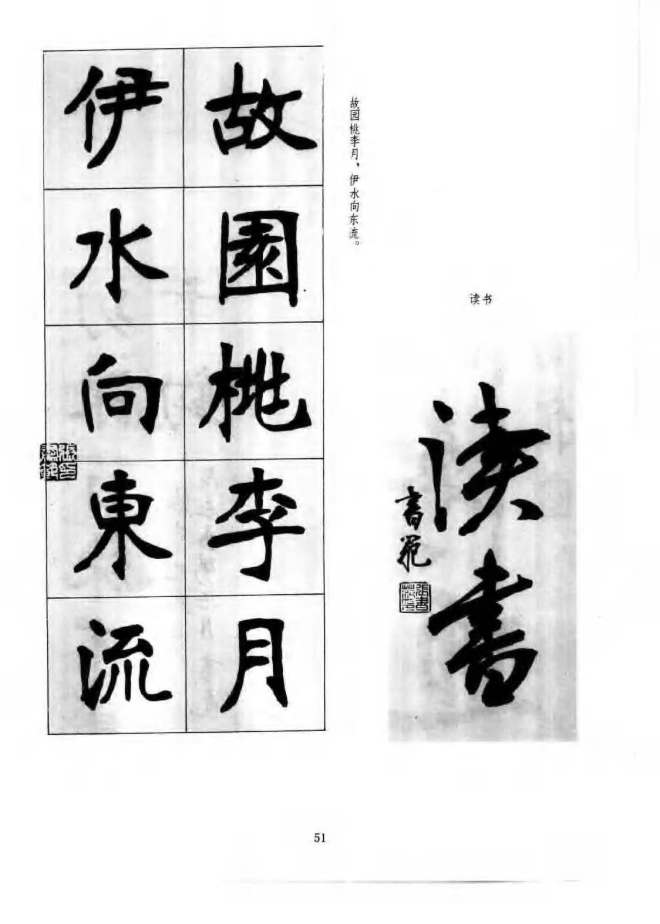 故園桃李月
伊水向東流
故园桃李月，伊水向东流。
读书
读書
書範
51